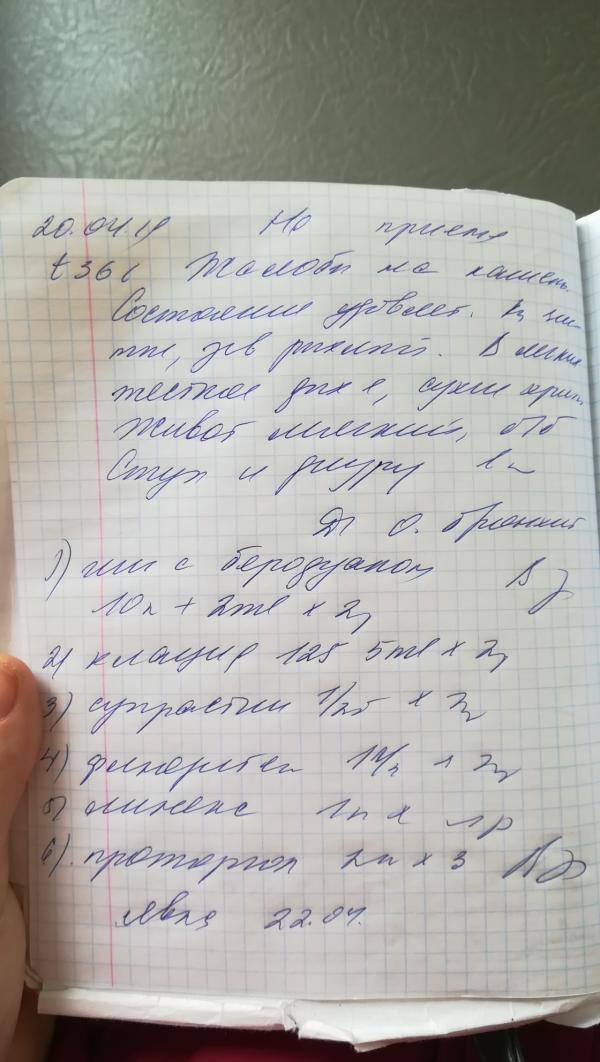 20.04.19 На приеме
t 36,6 Жалобы на кашель.
Состояние удовлет.
зев рыхлый. В легких
жесткое дых е, сухие хрипы
Живот мягкий, б/б
Стул и диурез
Дз О. бронхит
1) инг с беродуалом
10к + 2ml х 2р
2) клацид 125 5ml х 2р
3) супрастин 1/2т х 2р
4) х 2р
5) линекс 1п х 1р
6) проторгол 2к х 3
Явка 22.04.